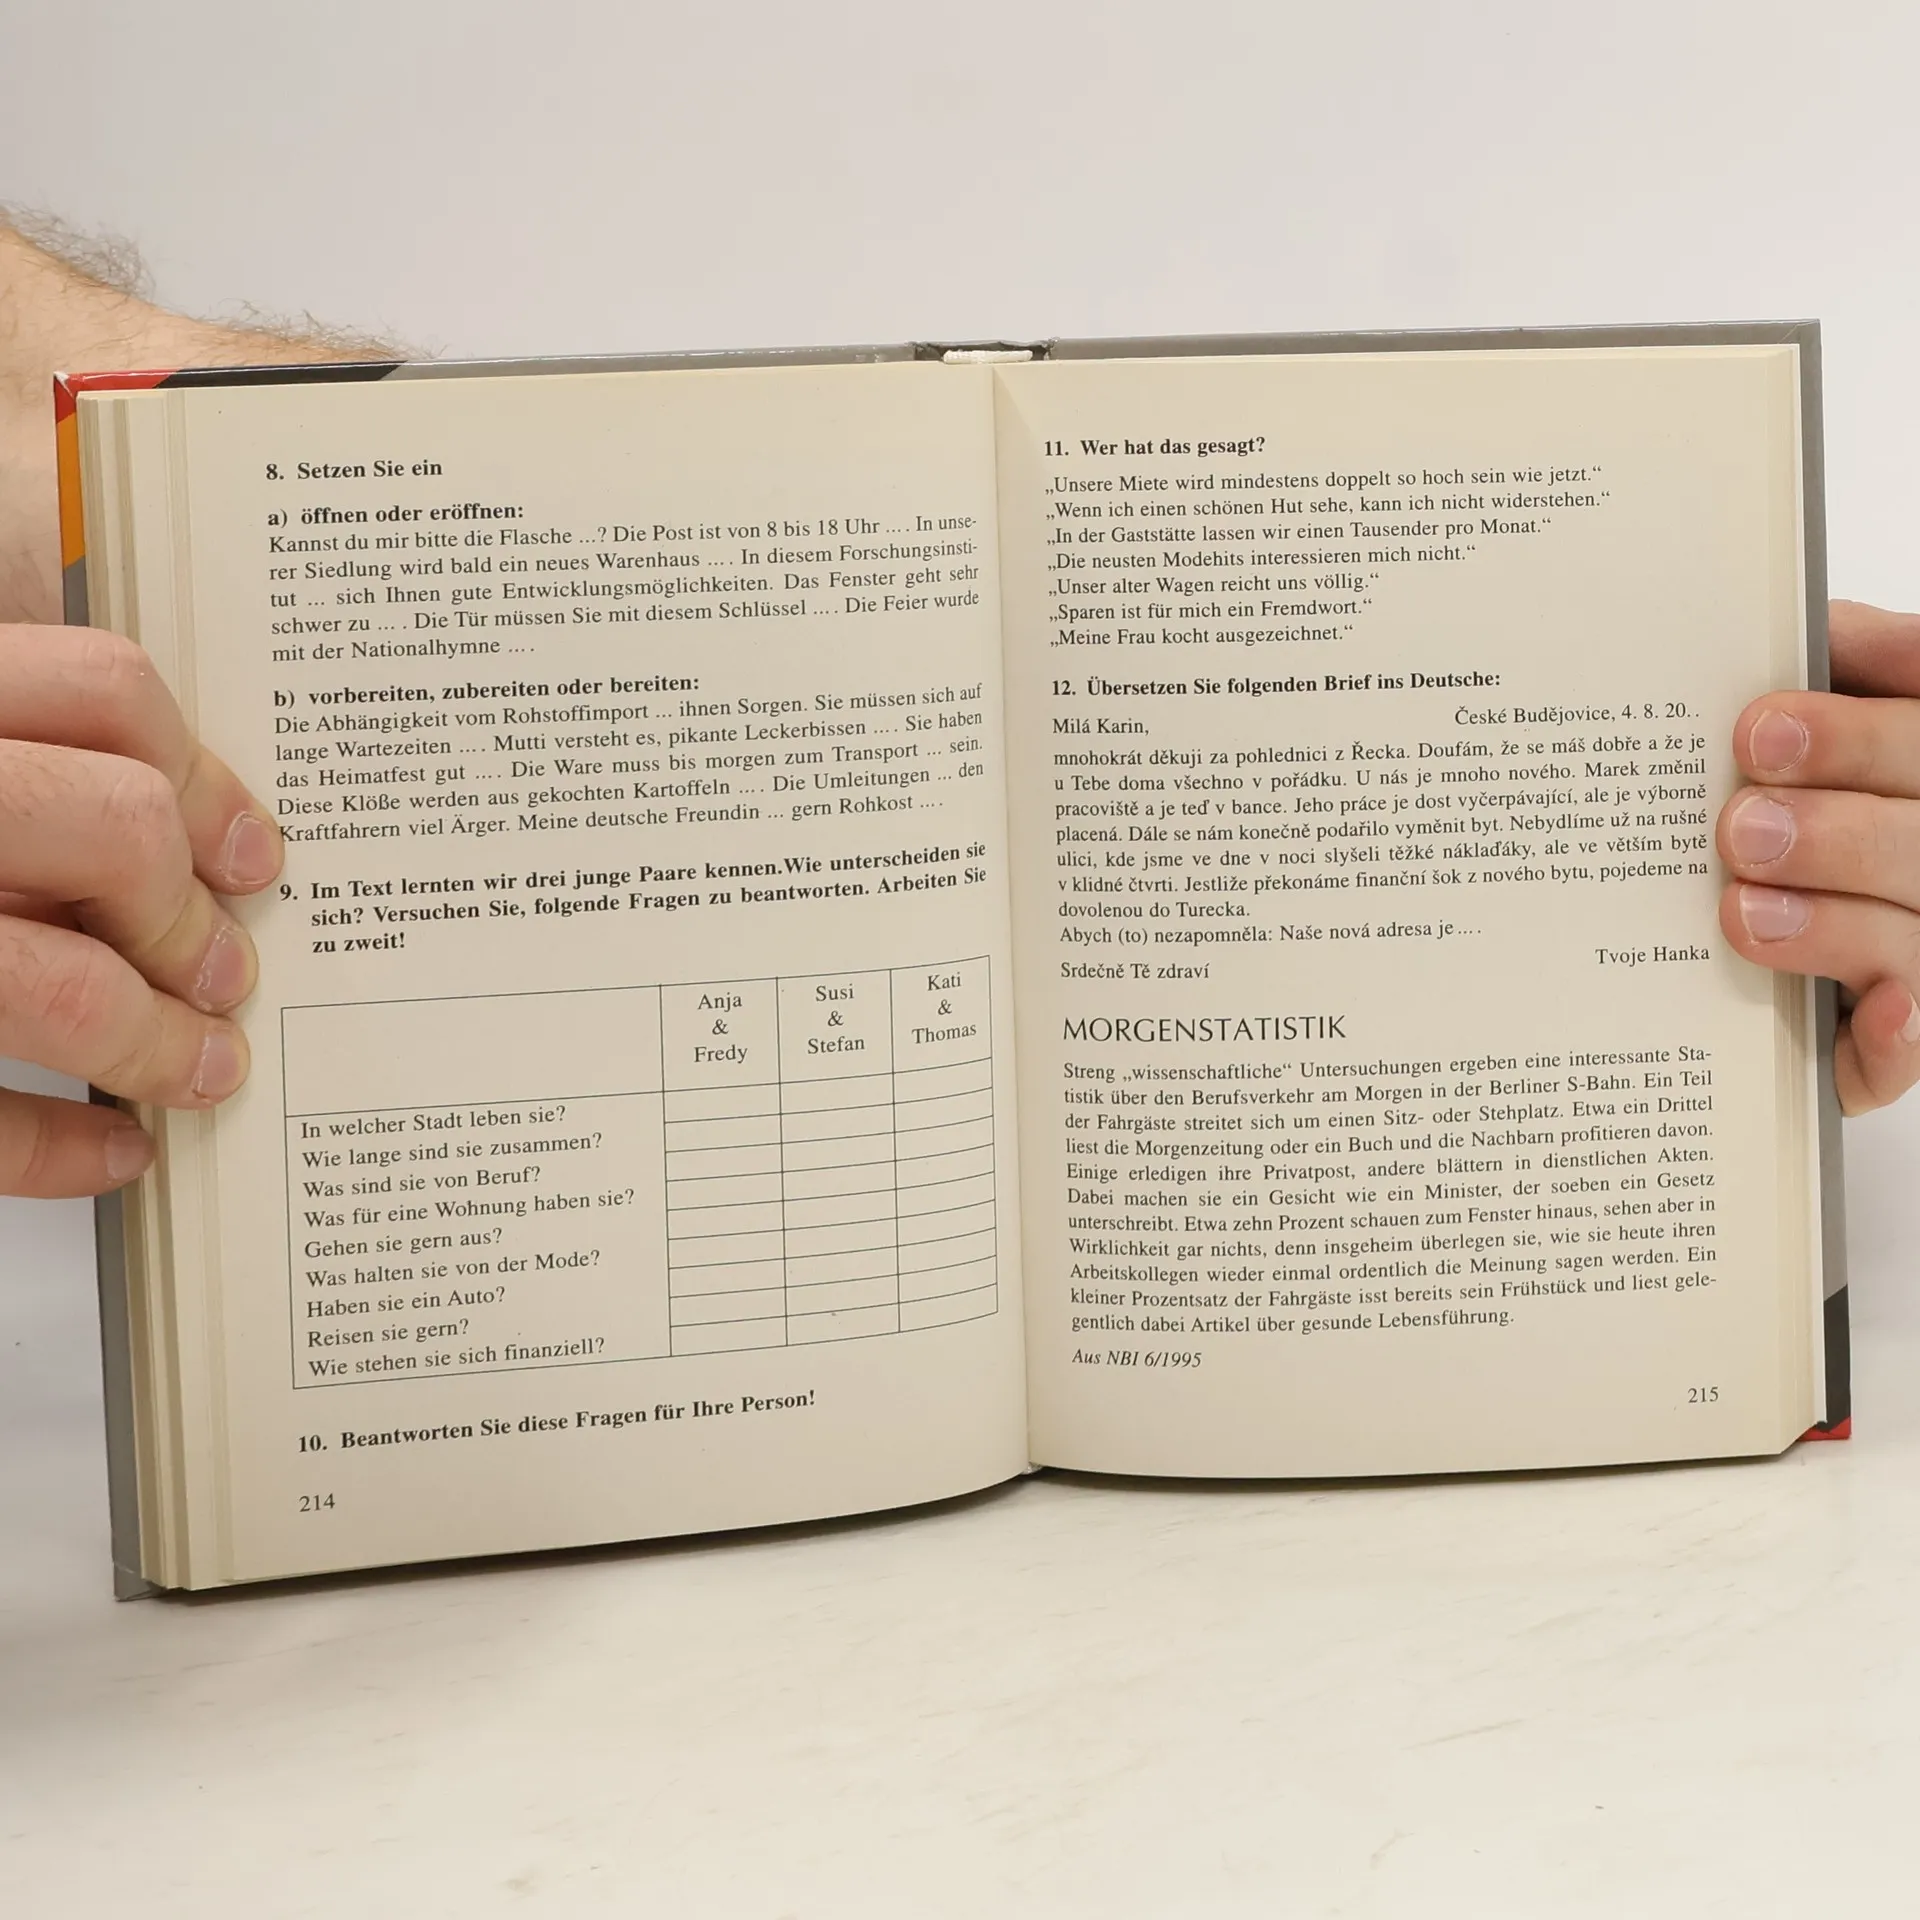 8. Setzen Sie ein
a) öffnen oder eröffnen:
Kannst du mir bitte die Flasche ...? Die Post ist von 8 bis 18 Uhr .... In unse-
rer Siedlung wird bald ein neues Warenhaus .... In diesem Forschungsinsti-
tut ... sich Ihnen gute Entwicklungsmöglichkeiten. Das Fenster geht sehr
schwer zu .... Die Tür müssen Sie mit diesem Schlüssel .... Die Feier wurde
mit der Nationalhymne ....
b) vorbereiten, zubereiten oder bereiten:
Die Abhängigkeit vom Rohstoffimport ... ihnen Sorgen. Sie müssen sich auf
lange Wartezeiten .... Mutti versteht es, pikante Leckerbissen .... Sie haben
das Heimatfest gut .... Die Ware muss bis morgen zum Transport ... sein.
Diese Klöße werden aus gekochten Kartoffeln .... Die Umleitungen ... den
Kraftfahrern viel Ärger. Meine deutsche Freundin ... gern Rohkost ....
9. Im Text lernten wir drei junge Paare kennen.Wie unterscheiden sie
sich? Versuchen Sie, folgende Fragen zu beantworten. Arbeiten Sie
zu zweit!
Anja & Fredy
Susi & Stefan
Kati & Thomas
In welcher Stadt leben sie?
Wie lange sind sie zusammen?
Was sind sie von Beruf?
Was für eine Wohnung haben sie?
Gehen sie gern aus?
Was halten sie von der Mode?
Haben sie ein Auto?
Reisen sie gern?
Wie stehen sie sich finanziell?
10. Beantworten Sie diese Fragen für Ihre Person!
214
11. Wer hat das gesagt?
„Unsere Miete wird mindestens doppelt so hoch sein wie jetzt.“
„Wenn ich einen schönen Hut sehe, kann ich nicht widerstehen.“
„In der Gaststätte lassen wir einen Tausender pro Monat.“
„Die neusten Modehits interessieren mich nicht.“
„Unser alter Wagen reicht uns völlig.“
„Sparen ist für mich ein Fremdwort.“
„Meine Frau kocht ausgezeichnet.“
12. Übersetzen Sie folgenden Brief ins Deutsche:
České Budějovice, 4. 8. 20..
Milá Karin,
mnohokrát děkuji za pohlednici z Řecka. Doufám, že se máš dobře a že je
u Tebe doma všechno v pořádku. U nás je mnoho nového. Marek změnil
pracoviště a je teď v bance. Jeho práce je dost vyčerpávající, ale je výborně
placená. Dále se nám konečně podařilo vyměnit byt. Nebydlíme už na rušné
ulici, kde jsme ve dne v noci slyšeli těžké náklaďáky, ale ve větším bytě
v klidné čtvrti. Jestliže překonáme finanční šok z nového bytu, pojedeme na
dovolenou do Turecka.
Abych (to) nezapomněla: Naše nová adresa je ....
Tvoje Hanka
Srdečně Tě zdraví
MORGENSTATISTIK
Streng „wissenschaftliche“ Untersuchungen ergeben eine interessante Sta-
tistik über den Berufsverkehr am Morgen in der Berliner S-Bahn. Ein Teil
der Fahrgäste streitet sich um einen Sitz- oder Stehplatz. Etwa ein Drittel
liest die Morgenzeitung oder ein Buch und die Nachbarn profitieren davon.
Einige erledigen ihre Privatpost, andere blättern in dienstlichen Akten.
Dabei machen sie ein Gesicht wie ein Minister, der soeben ein Gesetz
unterschreibt. Etwa zehn Prozent schauen zum Fenster hinaus, sehen aber in
Wirklichkeit gar nichts, denn insgeheim überlegen sie, wie sie heute ihren
Arbeitskollegen wieder einmal ordentlich die Meinung sagen werden. Ein
kleiner Prozentsatz der Fahrgäste isst bereits sein Frühstück und liest gele-
gentlich dabei Artikel über gesunde Lebensführung.
Aus NBI 6/1995
215